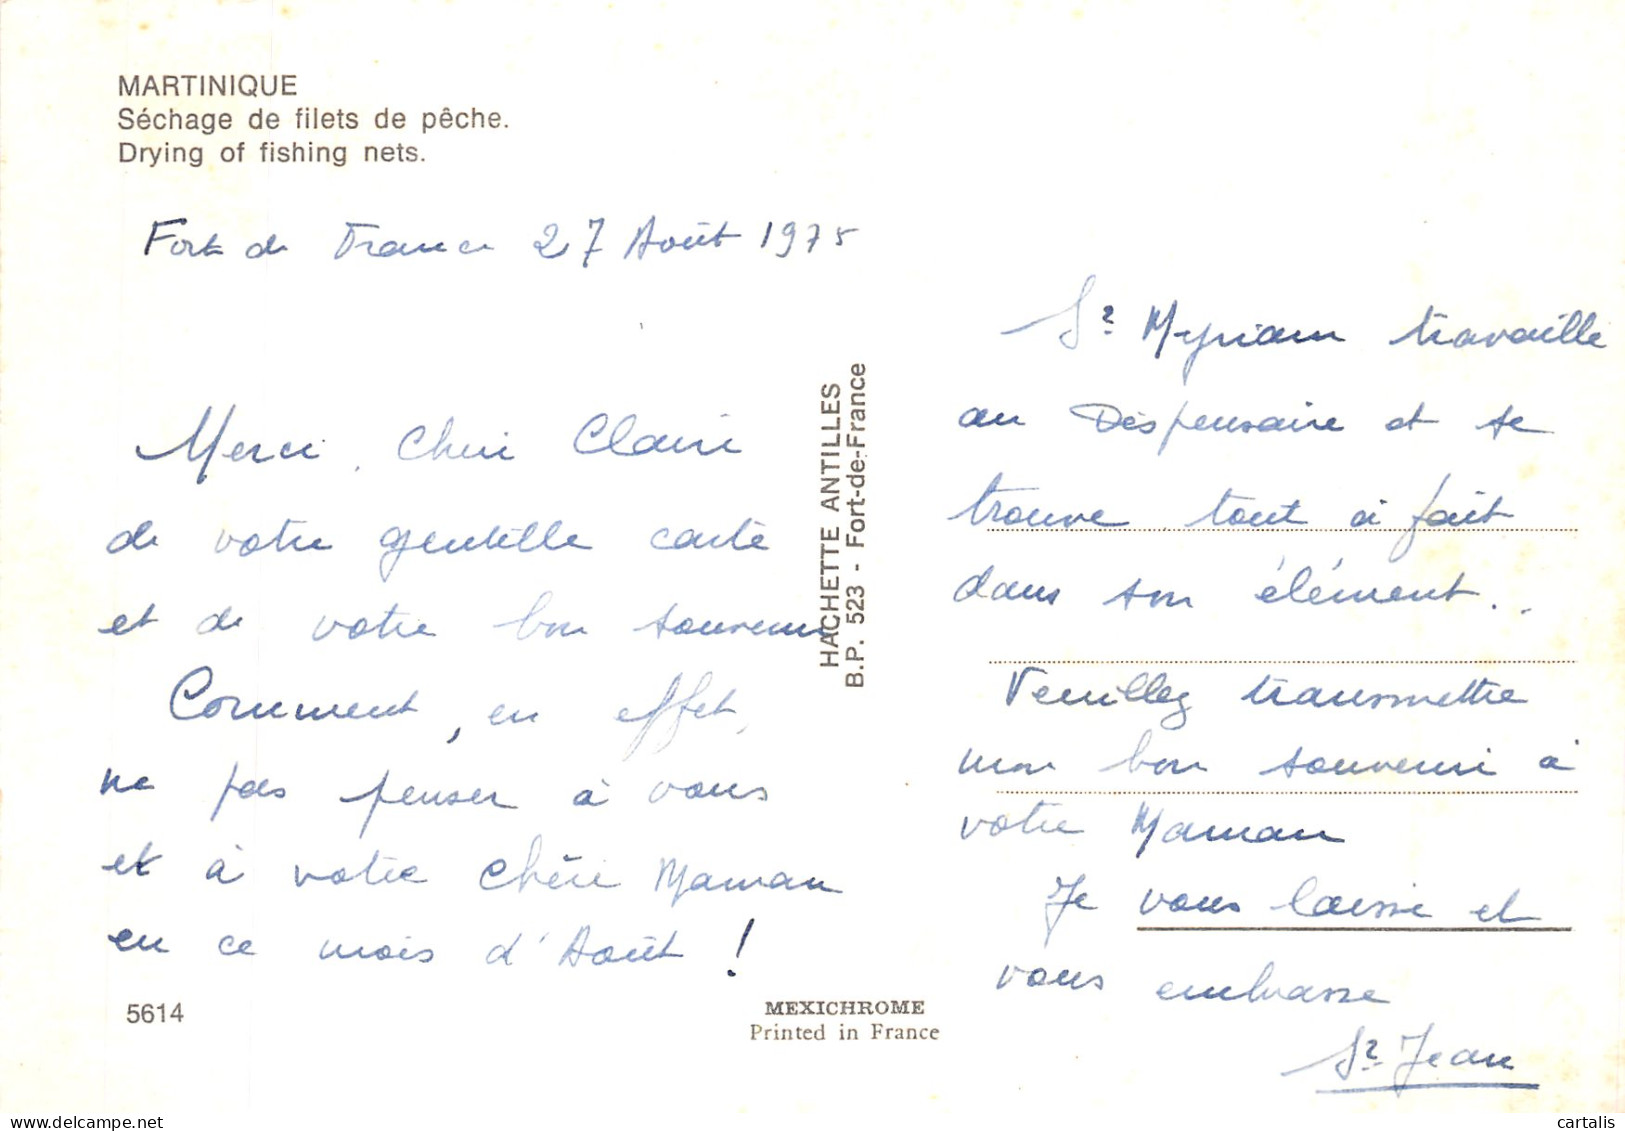 MARTINIQUE
Séchage de filets de pêche.
Drying of fishing nets.
Fort de France 27 Août 1975
Merci, Chère Claire
de votre gentille carte
et de votre bon souvenir
Comment, en effet,
ne pas penser à vous
et à votre chère Maman
en ce mois d'Août !
5614
HACHETTE ANTILLES
B.P. 523 - Fort-de-France
MEXICHROME
Printed in France
Sr Myriam travaille
au Dispensaire et se
trouve tout à fait
dans son élément..
Veuillez transmettre
mon bon souvenir à
votre Maman
Je vous laisse et
vous embrasse
Sr Jean
delcampe.net
cartalis